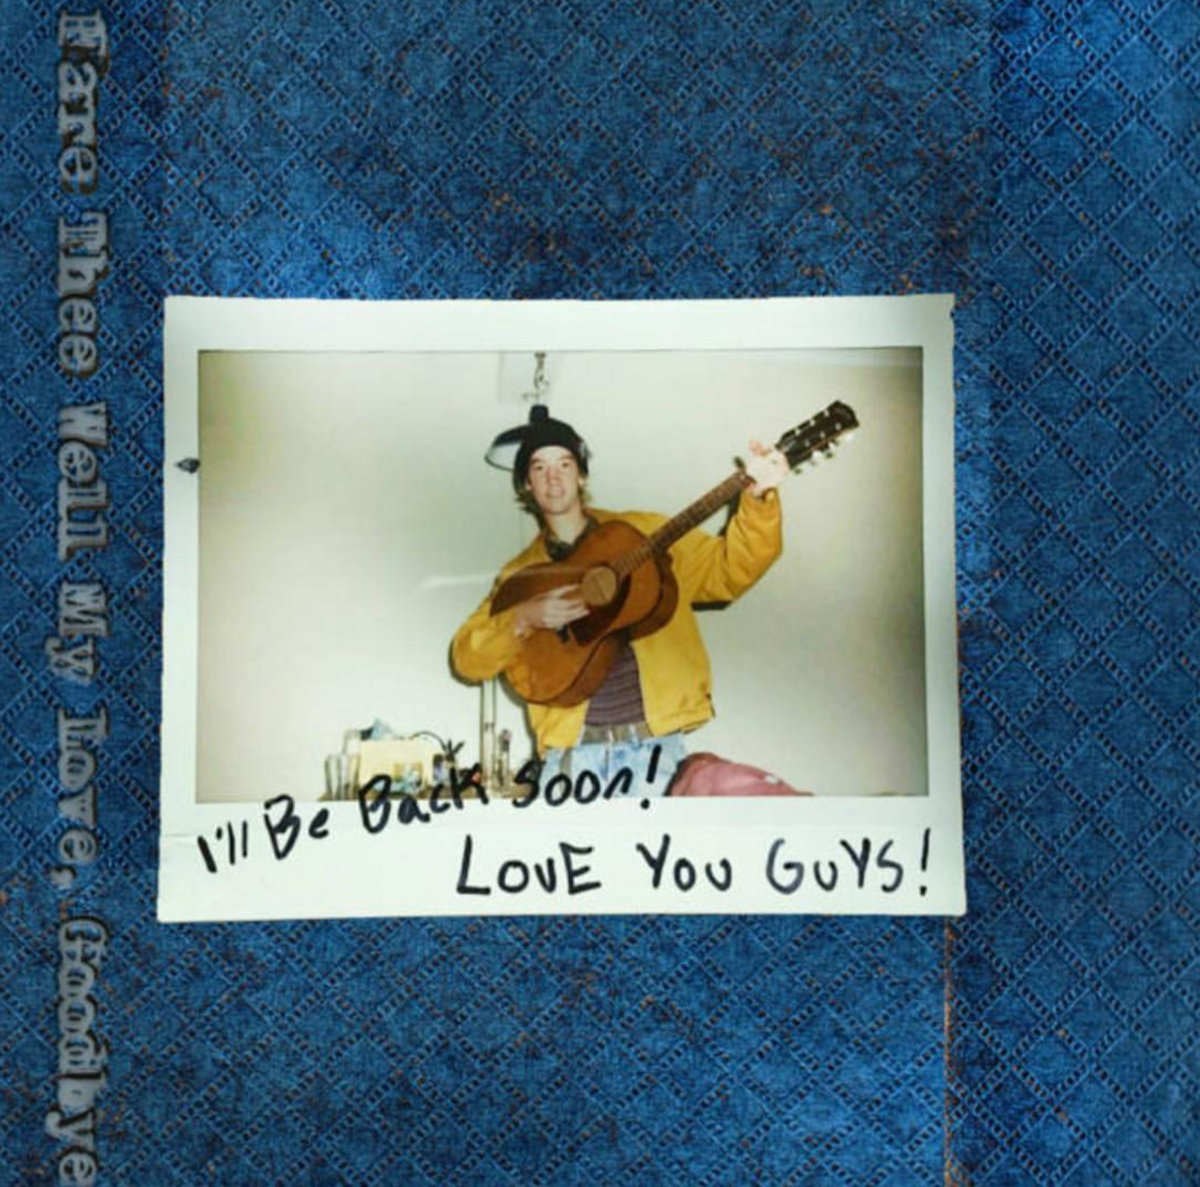 Fare Thee Well My Love, Goodbye
I'll Be Back Soon!
LOVE YOU GUYS!